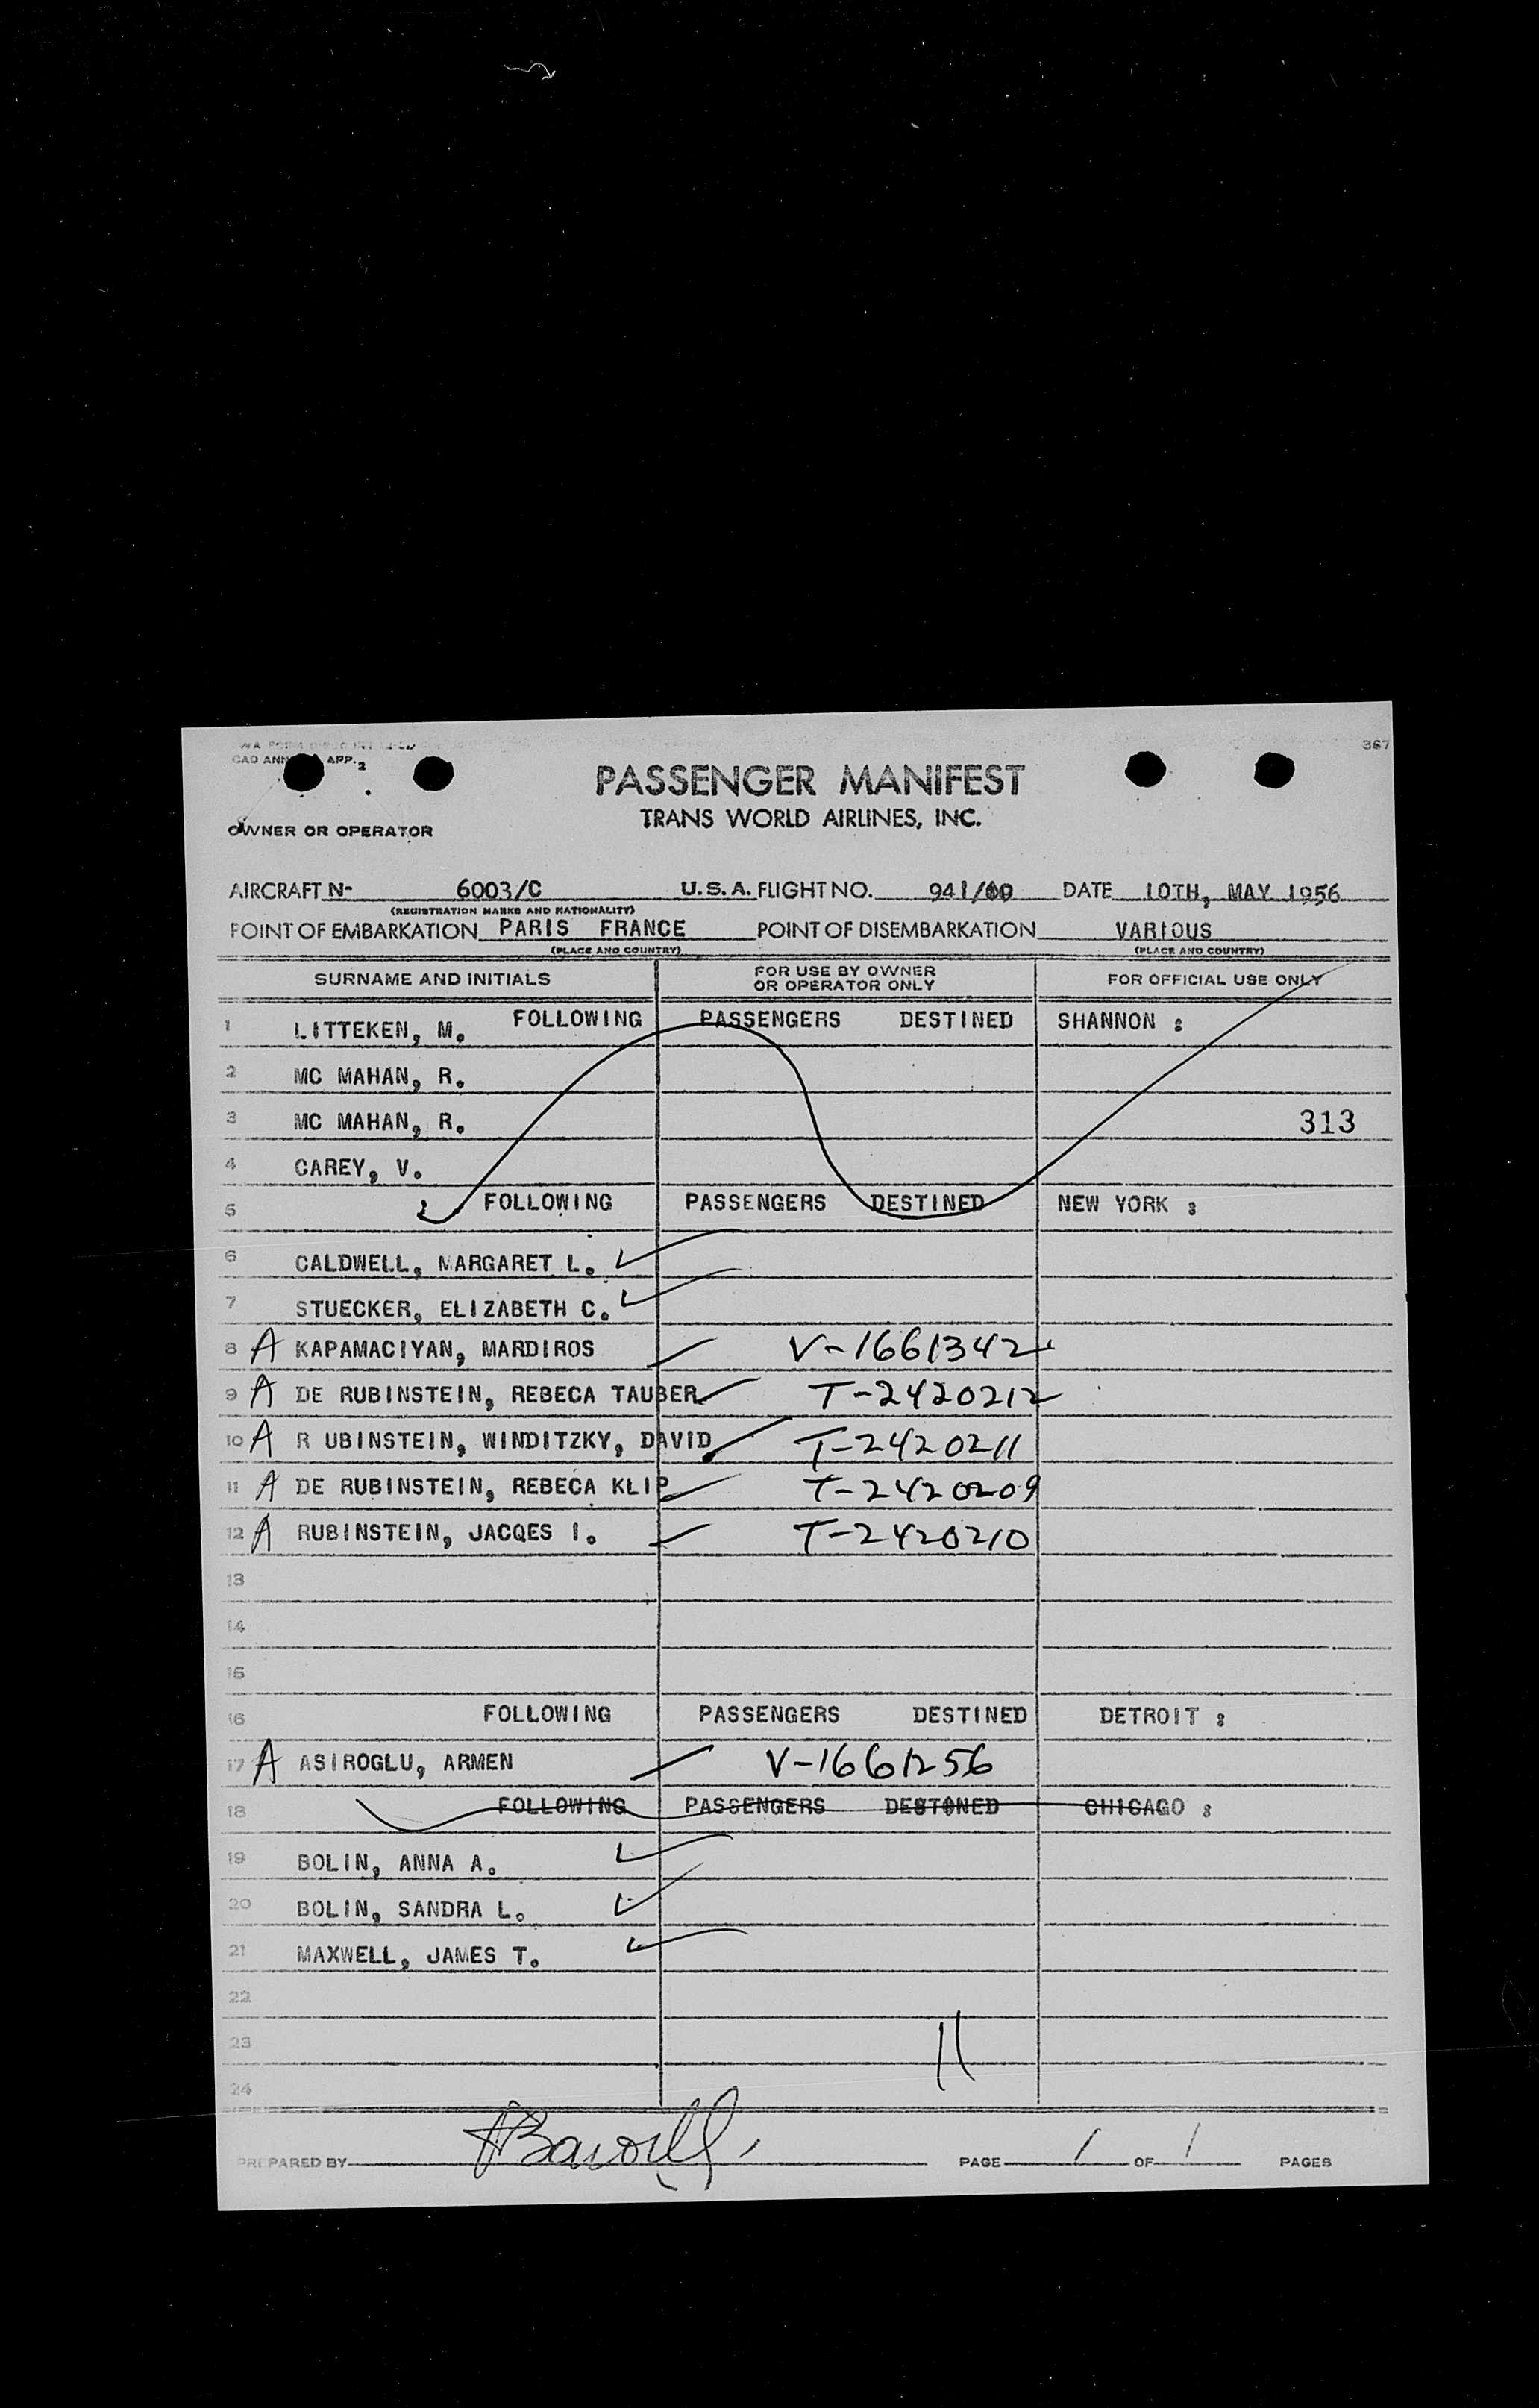 367
CAO ANN APP. 2
PASSENGER MANIFEST
TRANS WORLD AIRLINES, INC.
OWNER OR OPERATOR
AIRCRAFT N- 6003/C U.S.A. FLIGHT NO. 941/ DATE 10TH, MAY 1956
(REGISTRATION MARKS AND NATIONALITY)
POINT OF EMBARKATION PARIS FRANCE POINT OF DISEMBARKATION VARIOUS
(PLACE AND COUNTRY) (PLACE AND COUNTRY)
SURNAME AND INITIALS FOR USE BY OWNER OR OPERATOR ONLY FOR OFFICIAL USE ONLY
1 LITTEKEN, M. FOLLOWING PASSENGERS DESTINED SHANNON :
2 MC MAHAN, R.
3 MC MAHAN, R. 313
4 CAREY, V.
5 FOLLOWING PASSENGERS DESTINED NEW YORK :
6 CALDWELL, MARGARET L.
7 STUECKER, ELIZABETH C.
8 A KAPAMACIYAN, MARDIROS V-1661342
9 A DE RUBINSTEIN, REBECA TAUBER T-2420212
10 A R UBINSTEIN, WINDITZKY, DAVID T-2420211
11 A DE RUBINSTEIN, REBECA KLIP T-2420209
12 A RUBINSTEIN, JACQES I. T-2420210
13
14
15
16 FOLLOWING PASSENGERS DESTINED DETROIT :
17 A ASIROGLU, ARMEN V-1661256
18 FOLLOWING PASSENGERS DESTONED CHICAGO :
19 BOLIN, ANNA A.
20 BOLIN, SANDRA L.
21 MAXWELL, JAMES T.
22
23
24
11
PREPARED BY PAGE 1 OF 1 PAGES